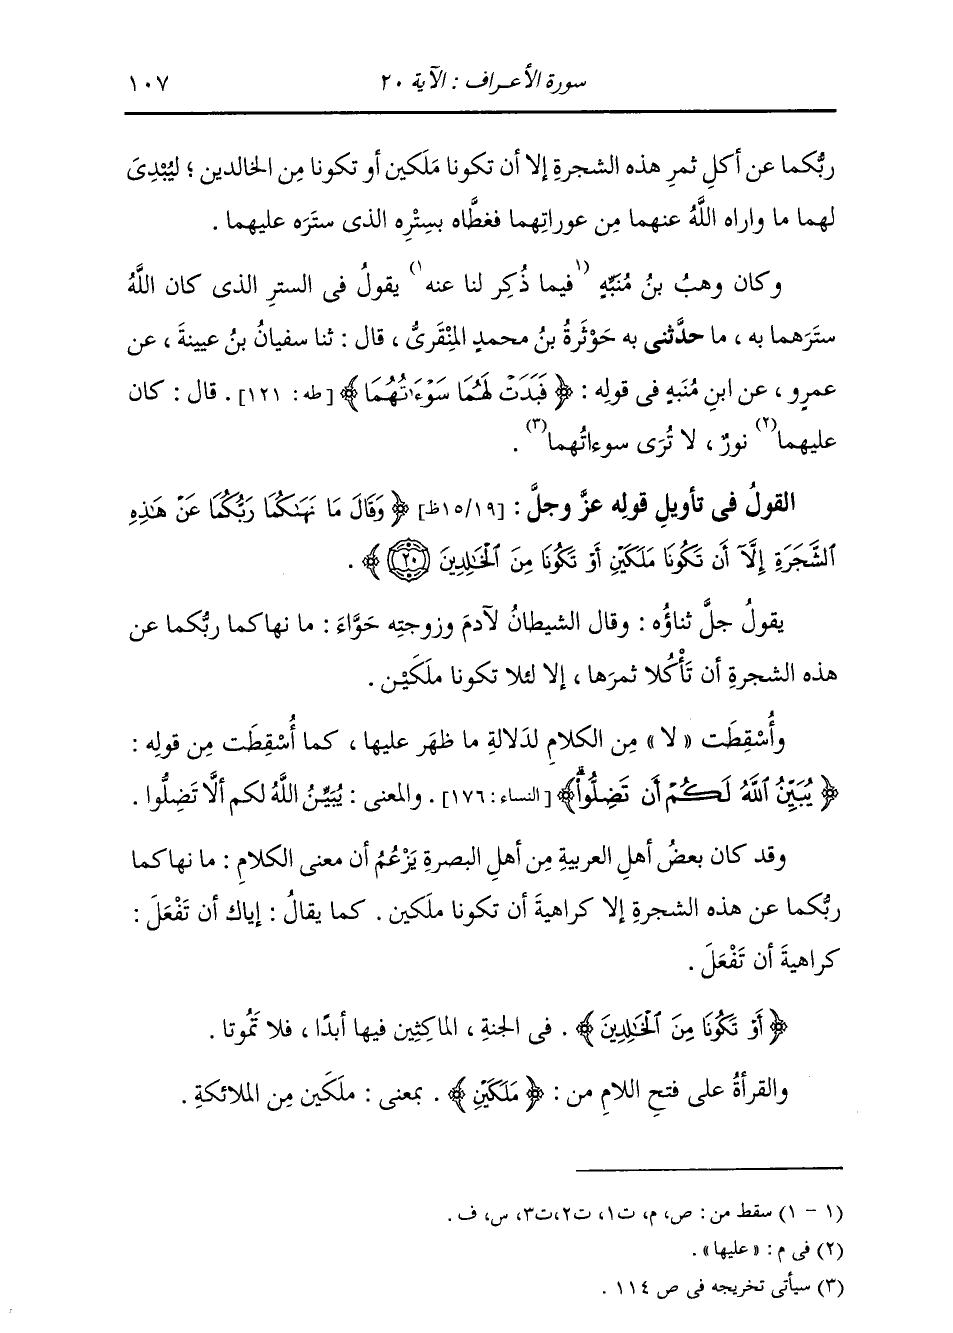 سورة الأعراف : الآية ٢٠ ١٠٧
ربُّكما عن أكلِ ثمرِ هذه الشجرةِ إلا أن تكونا مَلَكين أو تكونا مِن الخالدين ؛ ليُبْدِىَ
لهما ما واراه اللَّهُ عنهما مِن عوراتِهما فغطَّاه بسِتْرِه الذى ستَرَه عليهما .
وكان وهبُ بنُ مُنَبِّهٍ (١فيما ذُكِر لنا عنه١) يقولُ فى السترِ الذى كان اللَّهُ
ستَرَهما به ، ما حدَّثنى به حَوْثَرةُ بنُ محمدٍ المِنْقَرىُّ ، قال : ثنا سفيانُ بنُ عيينةَ ، عن
عمرٍو ، عن ابنِ مُنَبهٍ فى قولِه : ﴿ فَبَدَتْ لَهُمَا سَوْءَٰتُهُمَا ﴾ [طه: ١٢١] . قال : كان
عليهما(٢) نورٌ ، لا تُرَى سوءاتُهما(٣) .
القولُ فى تأويلِ قولِه عزَّ وجلَّ : [١٥/١٩ظ] ﴿ وَقَالَ مَا نَهَىٰكُمَا رَبُّكُمَا عَنْ هَٰذِهِ
ٱلشَّجَرَةِ إِلَّآ أَن تَكُونَا مَلَكَيْنِ أَوْ تَكُونَا مِنَ ٱلْخَٰلِدِينَ ٢٠ ﴾ .
يقولُ جلَّ ثناؤُه : وقال الشيطانُ لآدمَ وزوجتِه حَوَّاءَ : ما نهاكما ربُّكما عن
هذه الشجرةِ أن تَأْكُلا ثمرَها ، إلا لئلا تكونا ملَكَيْن .
وأُسْقِطَت « لا » مِن الكلامِ لدَلالةِ ما ظهَر عليها ، كما أُسْقِطَت مِن قولِه :
﴿ يُبَيِّنُ ٱللَّهُ لَكُمْ أَن تَضِلُّواْ ﴾ [النساء: ١٧٦] . والمعنى : يُبَيِّنُ اللَّهُ لكم ألَّا تَضِلُّوا .
وقد كان بعضُ أهلِ العربيةِ مِن أهلِ البصرةِ يَزْعُمُ أن معنى الكلامِ : ما نهاكما
ربُّكما عن هذه الشجرةِ إلا كراهيةَ أن تكونا ملَكين . كما يقالُ : إياك أن تَفْعَلَ :
كراهيةَ أن تَفْعَلَ .
﴿ أَوْ تَكُونَا مِنَ ٱلْخَٰلِدِينَ ﴾ . فى الجنةِ ، الماكِثِين فيها أبدًا ، فلا تَمُوتا .
والقرأةُ على فتحِ اللامِ من : ﴿ مَلَكَيْنِ ﴾ . بمعنى : ملَكَين مِن الملائكةِ .
(١ - ١) سقط من : ص، م، ت١، ت٢، ت٣، س، ف .
(٢) فى م : « عليها » .
(٣) سيأتى تخريجه فى ص ١١٤ .